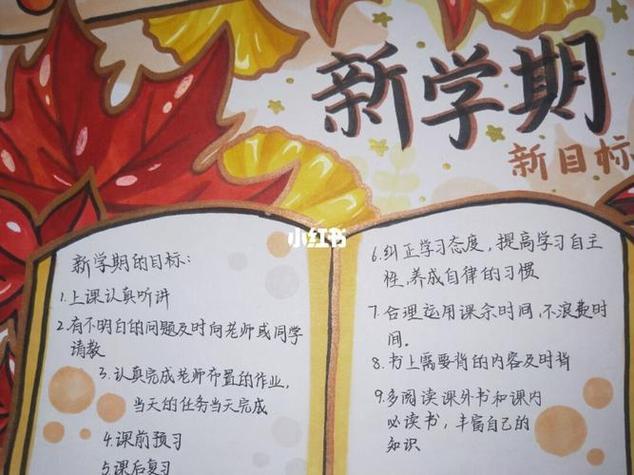 新学期
新目标
小红书
新学期的目标:
1.上课认真听讲
2.有不明白的问题及时向老师或同学
请教
3.认真完成老师布置的作业,
当天的任务当天完成
4课前预习
5课后复习
6.纠正学习态度,提高学习自主
性,养成自律的习惯
7.合理运用课余时间,不浪费时
间.
8.书上需要背的内容及时背
9.多阅读课外书和课内
必读书,丰富自己的
知识